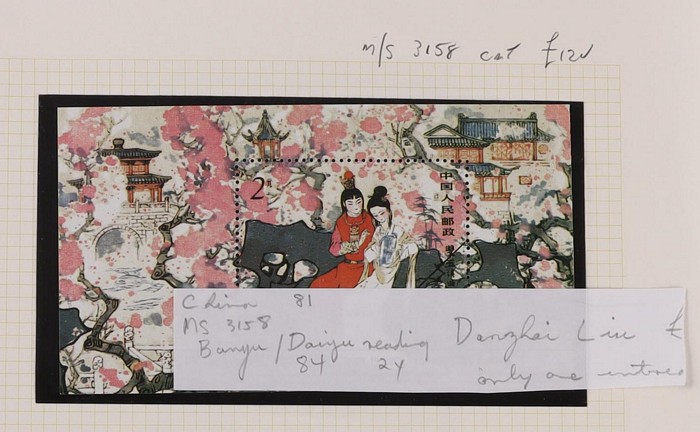 M/S 3158 cat £120
2元
中国人民邮政
China 81
MS 3158
Baoyu/Daiyu reading
84 2Y
Danzhai Liu £
only one